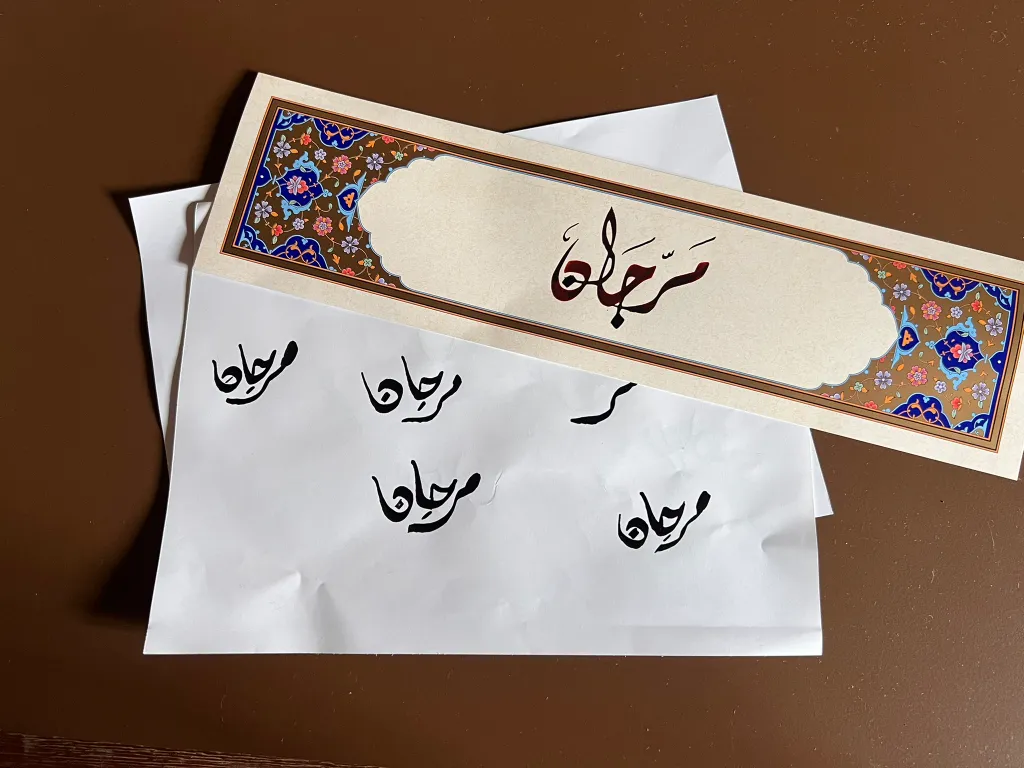 مرّجان
مرجان مرجان
مرجان مرجان